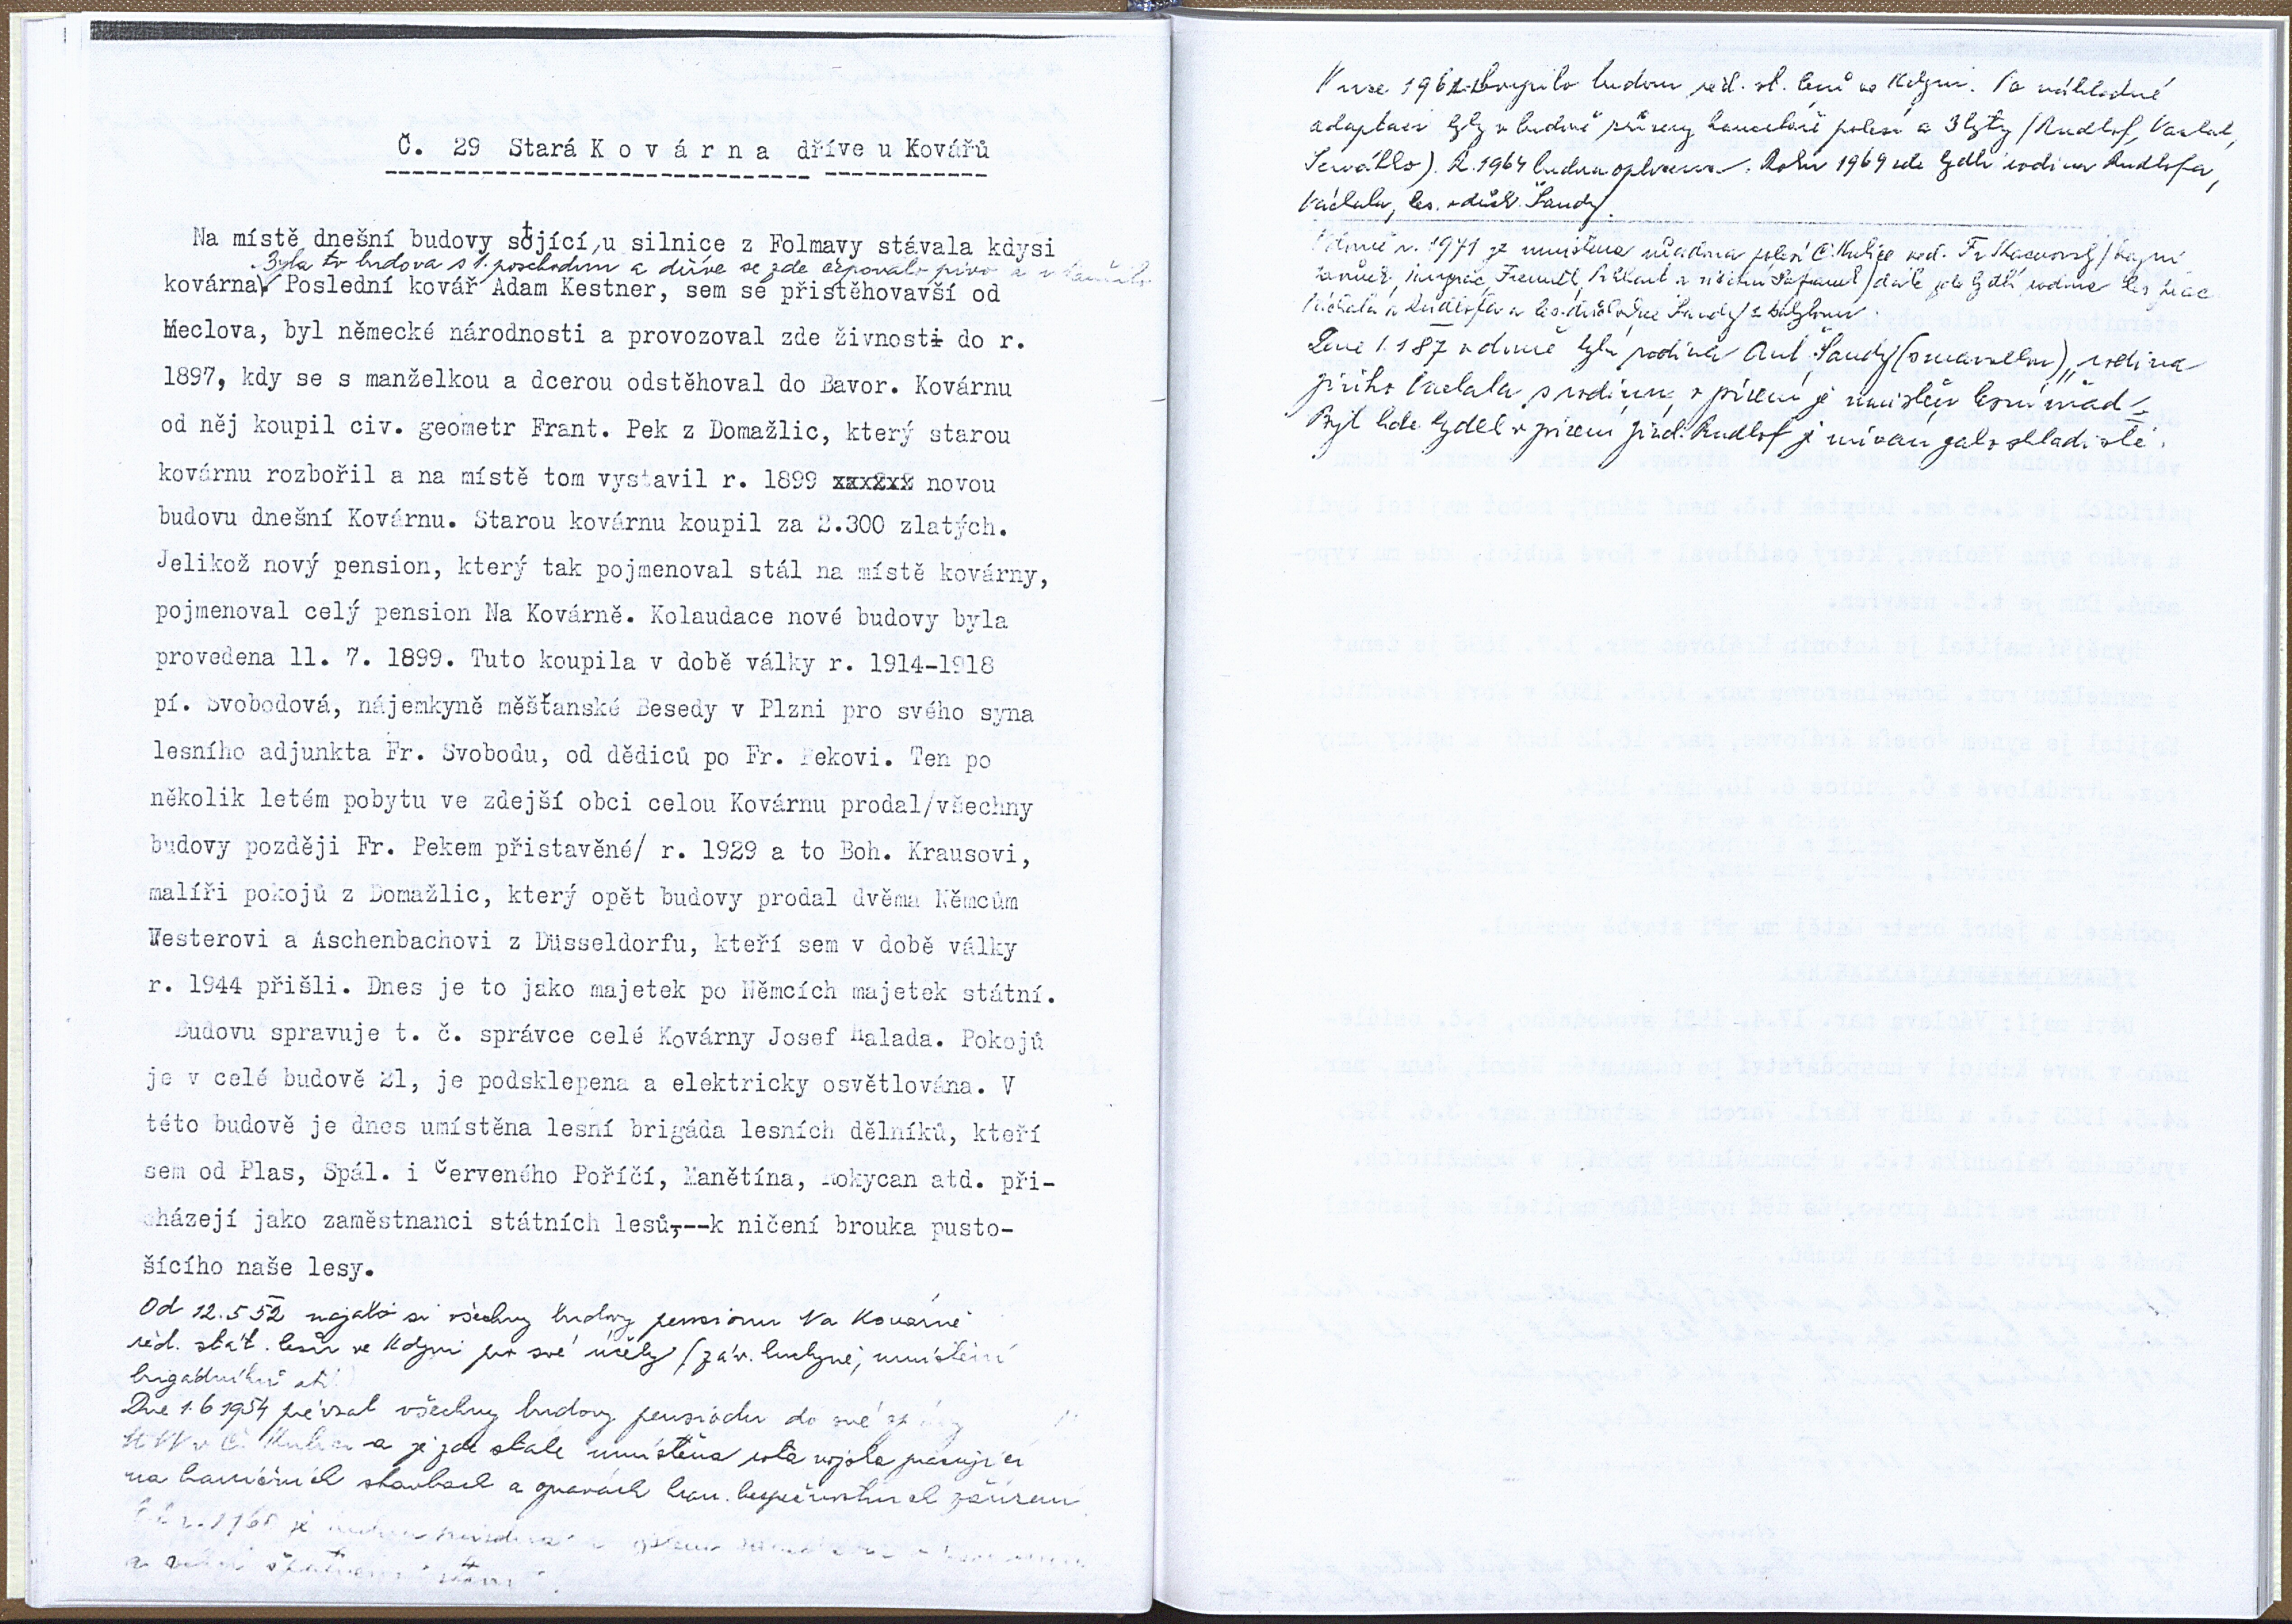 Č. 29 Stará K o v á r n a dříve u Kovářů
Na místě dnešní budovy stojící, u silnice z Folmavy stávala kdysi
Byla to budova s 1. poschodím a dříve se zde čepovalo pivo a
kovárna. Poslední kovář Adam Kestner, sem se přistěhovavší od
Meclova, byl německé národnosti a provozoval zde živnost do r.
1897, kdy se s manželkou a dcerou odstěhoval do Bavor. Kovárnu
od něj koupil civ. geometr Frant. Pek z Domažlic, který starou
kovárnu rozbořil a na místě tom vystavil r. 1899 novou
budovu dnešní Kovárnu. Starou kovárnu koupil za 2.300 zlatých.
Jelikož nový pension, který tak pojmenoval stál na místě kovárny,
pojmenoval celý pension Na Kovárně. Kolaudace nové budovy byla
provedena 11. 7. 1899. Tuto koupila v době války r. 1914-1918
pí. Svobodová, nájemkyně měšťanské Besedy v Plzni pro svého syna
lesního adjunkta Fr. Svobodu, od dědiců po Fr. Pekovi. Ten po
několik letém pobytu ve zdejší obci celou Kovárnu prodal/všechny
budovy později Fr. Pekem přistavěné/ r. 1929 a to Boh. Krausovi,
malíři pokojů z Domažlic, který opět budovy prodal dvěma Němcům
Westerovi a Aschenbachovi z Düsseldorfu, kteří sem v době války
r. 1944 přišli. Dnes je to jako majetek po Němcích majetek státní.
Budovu spravuje t. č. správce celé Kovárny Josef Halada. Pokojů
je v celé budově 21, je podsklepena a elektricky osvětlována. V
této budově je dnes umístěna lesní brigáda lesních dělníků, kteří
sem od Plas, Spál. i Červeného Poříčí, Manětína, Rokycan atd. při-
cházejí jako zaměstnanci státních lesů,---k ničení brouka pusto-
šícího naše lesy.
Od 12.5 52 najalo si všechny budovy pensionu Na Kovárně
řed. stát. lesů ve Kdyni pro své účely (záv. kuchyně, umístění
brigádníků atd.)
Dne 1.6 1954 převzal všechny budovy pensionu do své
MNV v Č. Kubici a je zde stále umístěna rota vojska pracující
na hraničních stavbách a opravách hran. bezpečnostních zařízení
r. 1960 je budova
a ve špatném stavu.
V roce 1961 koupilo budovu řed. st. lesů ve Kdyni. Po nákladné
adaptaci byly v budově zřízeny kanceláře polesí a 3 byty (Rudlof, Vachal,
). R. 1964 budova oplocena. Roku 1969 zde bydlí rodina Rudlofa,
Váchala, les. důch. Šandy.
V domě r. 1971 je umístěna úřadovna polesí Č. Kubice ved. Fr.
/dále zde bydlí rodina les. prac.
Váchala a Rudlofa a les. důchodce Šandy s
Dne 1.1 87 v domě bydlí rodina Ant. Šandy (s manželkou), rodina
Jiřího Vachala s rodinou, v přízemí je umístěn lesní úřad
Byt kde bydlel v přízemí Rudlof je užíván jako skladiště.